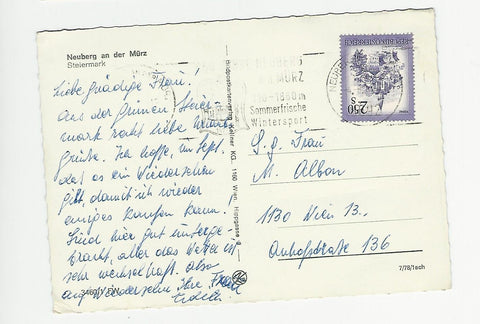 Neuberg an der Mürz
Steiermark
Liebe Gnädige Frau!
Aus der Grünen Steier-
mark liebe
Grüße. Ich hoffe, im Sept.
daß es ein Wiedersehen
gibt, damit ich wieder
einiges kaufen kann.
Sind hier gut unterge-
bracht, aber das Wetter ist
sehr wechselhaft. Also
auf Wiedersehn Ihre Frau
NEUBERG
MÜRZ
Sommerfrische
Wintersport
REPUBLIK ÖSTERREICH
S 2.50
S. g. Frau
M. Albon
1130 Wien 13.,
Anhofstraße 136
KG., 1160 Wien,
7/78/1sch